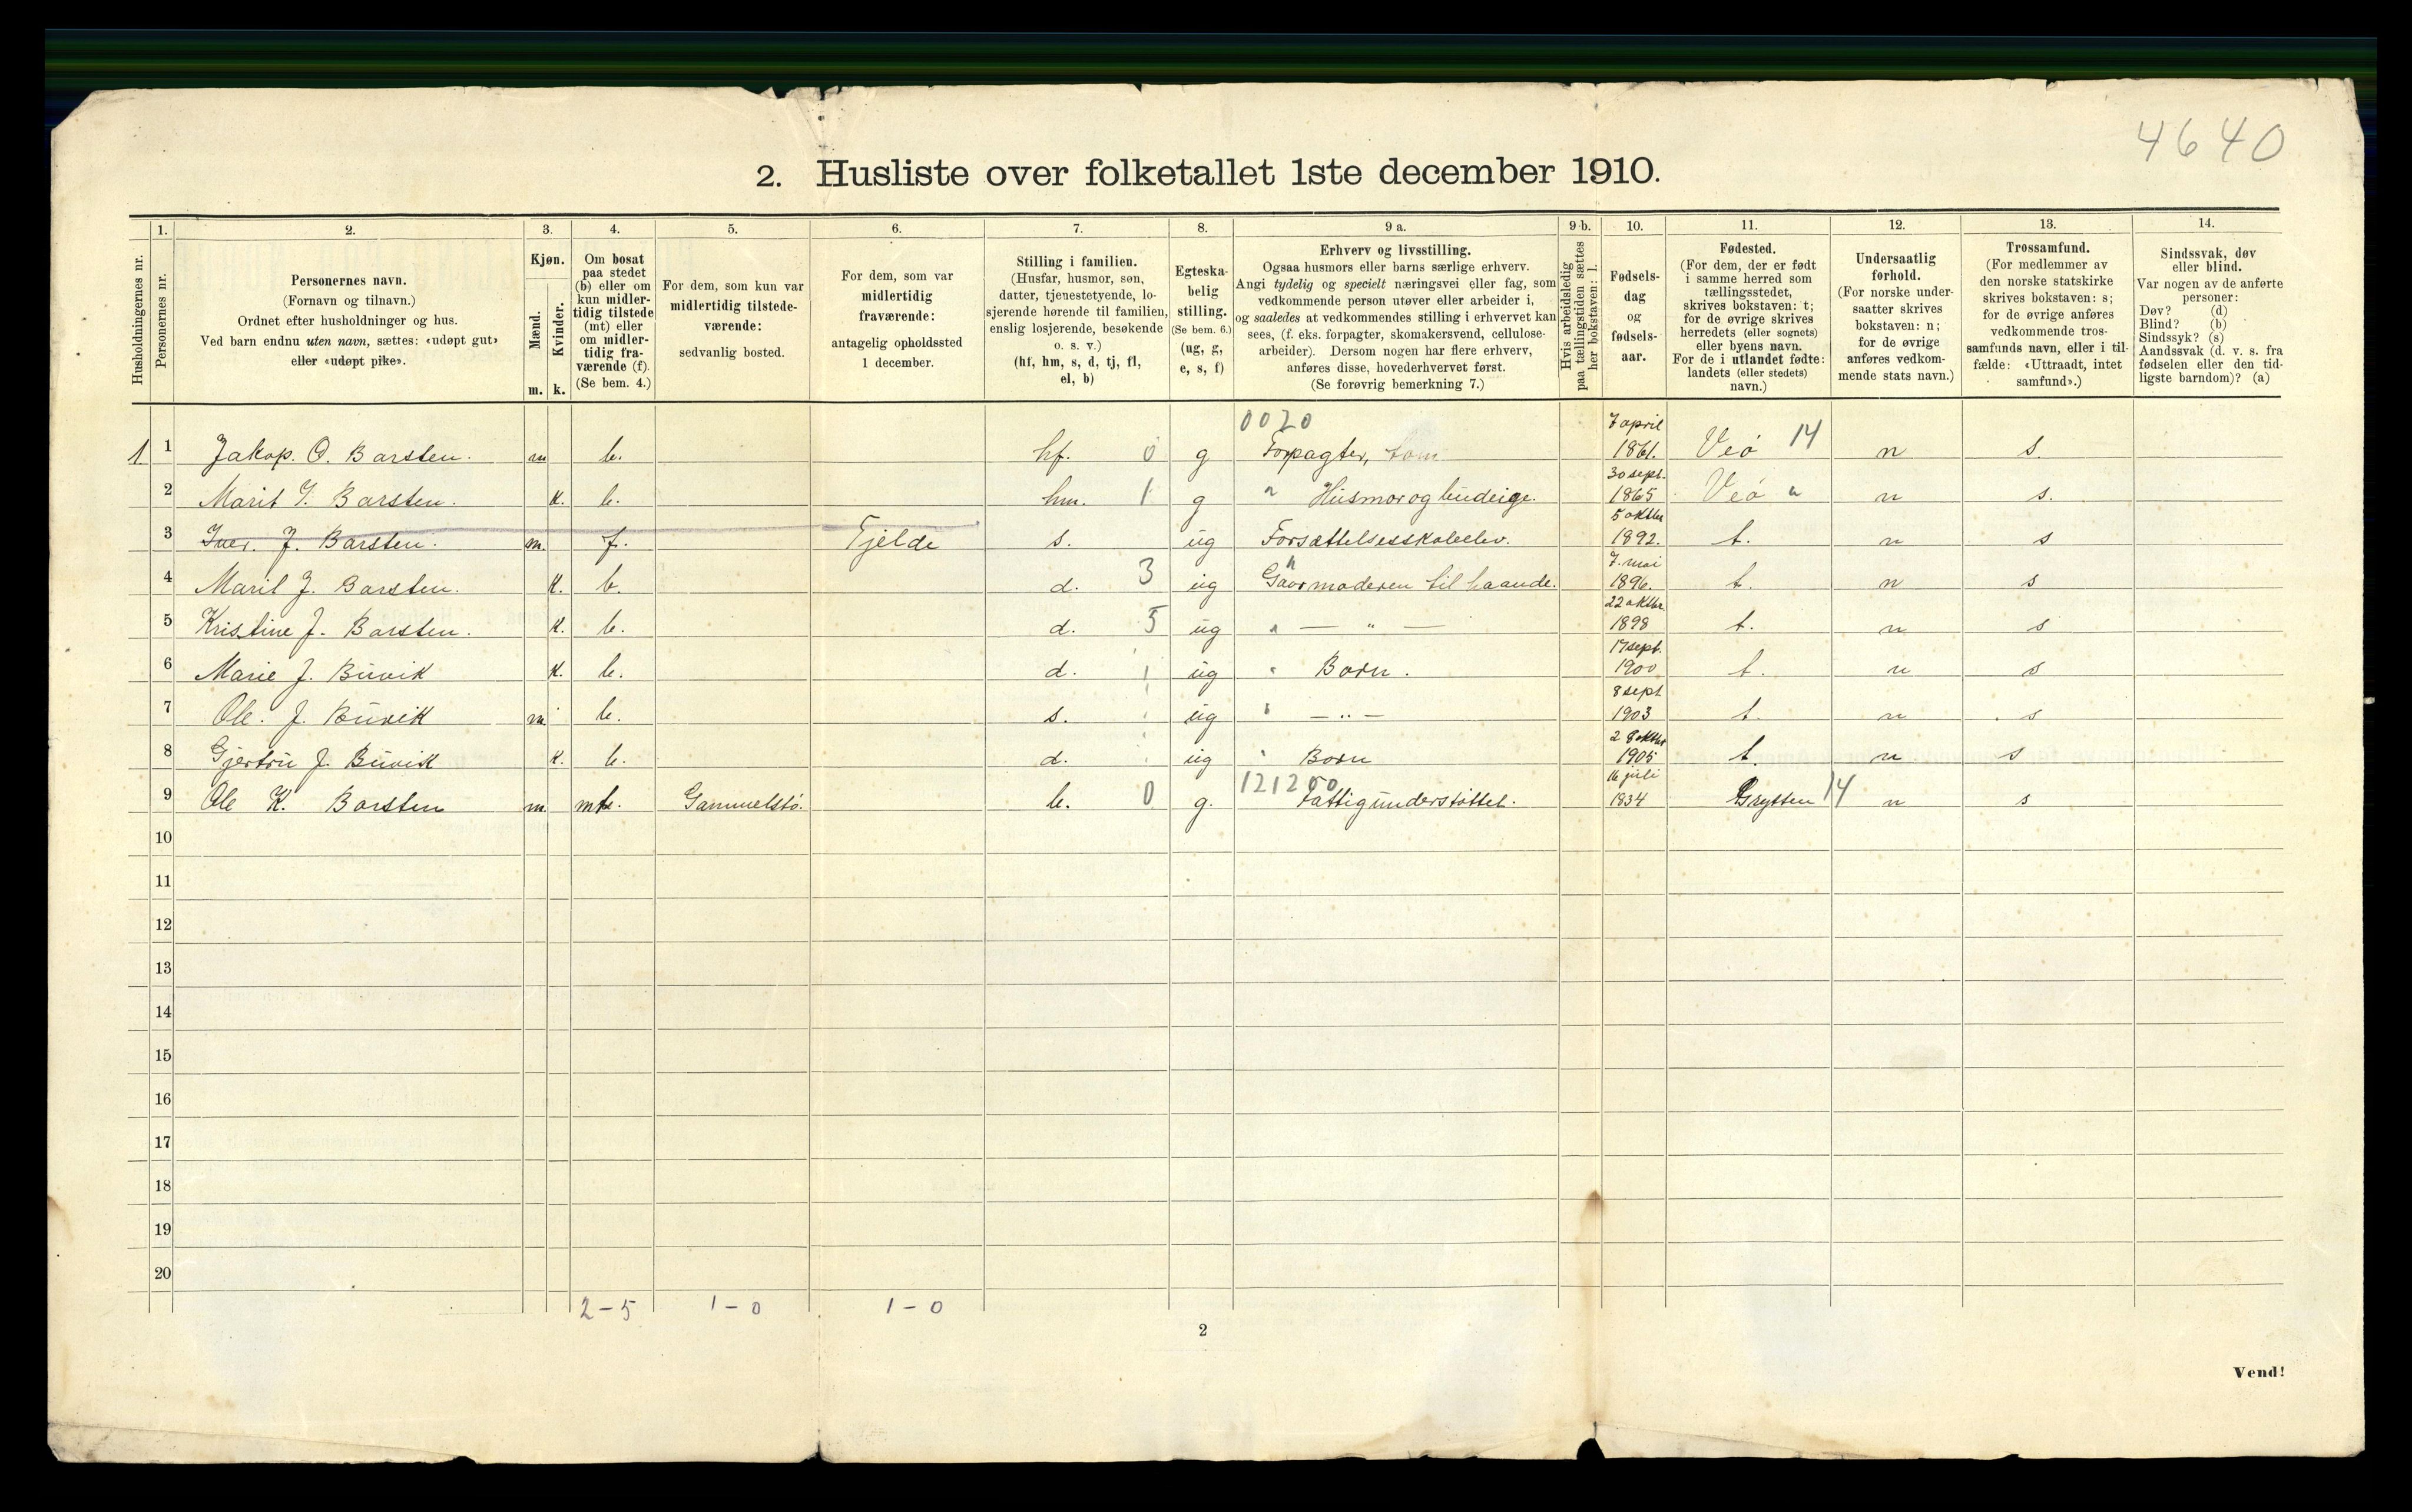 4640
2. Husliste over folketallet 1ste december 1910.
Husholdningernes nr.
1.
Personernes nr.
2.
Personernes navn.
(Fornavn og tilnavn.)
Ordnet efter husholdninger og hus.
Ved barn endnu uten navn, sættes: «udøpt gut»
eller «udøpt pike».
3.
Kjøn.
Mænd.
Kvinder.
m. k.
4.
Om bosat
paa stedet
(b) eller om
kun midler-
tidig tilstede
(mt) eller
om midler-
tidig fra-
værende (f).
(Se bem. 4.)
5.
For dem, som kun var
midlertidig tilstede-
værende:
sedvanlig bosted.
6.
For dem, som var
midlertidig
fraværende:
antagelig opholdssted
1 december.
7.
Stilling i familien.
(Husfar, husmor, søn,
datter, tjenestetyende, lo-
sjerende hørende til familien,
enslig losjerende, besøkende
o. s. v.)
(hf, hm, s, d, tj, fl,
el, b)
8.
Egteska-
belig
stilling.
(Se bem. 6.)
(ug, g,
e, s, f)
9 a.
Erhverv og livsstilling.
Ogsaa husmors eller barns særlige erhverv.
Angi tydelig og specielt næringsvei eller fag, som
vedkommende person utøver eller arbeider i,
og saaledes at vedkommendes stilling i erhvervet kan
sees, (f. eks. forpagter, skomakersvend, cellulose-
arbeider). Dersom nogen har flere erhverv,
anføres disse, hovederhvervet først.
(Se forøvrig bemerkning 7.)
9 b.
Hvis arbeidsledig
paa tællingstiden sættes
her bokstaven: l.
10.
Fødsels-
dag
og
fødsels-
aar.
11.
Fødested.
(For dem, der er født
i samme herred som
tællingsstedet,
skrives bokstaven: t;
for de øvrige skrives
herredets (eller sognets)
eller byens navn.
For de i utlandet fødte:
landets (eller stedets)
navn.)
12.
Undersaatlig
forhold.
(For norske under-
saatter skrives
bokstaven: n;
for de øvrige
anføres vedkom-
mende stats navn.)
13.
Trossamfund.
(For medlemmer av
den norske statskirke
skrives bokstaven: s;
for de øvrige anføres
vedkommende tros-
samfunds navn, eller i til-
fælde: «Uttraadt, intet
samfund».)
14.
Sindssvak, døv
eller blind.
Var nogen av de anførte
personer:
Døv? (d)
Blind? (b)
Sindssyk? (s)
Aandssvak (d. v. s. fra
fødselen eller den tid-
ligste barndom)? (a)
1 1 Jakop. O. Barsten. m b. hf. 0 g 0020 Forpagter, 7 april 1861. Veø 14 n s.
2 Marit I. Barsten. k. b. hm. 1 g " Husmor og budeige. 30 sept. 1865 Veø " n s.
3 Iver. J. Barsten. m. f. Tjelde s. ug Forsættelsesskoleelev. 5 oktbr 1892. t. n s
4 Marit J. Barsten. k. b. d. 3 ug " moderen til haande. 7. mai 1896. t. n s
5 Kristine J. Barsten. k. b. d. 5 ug " — " — 22 oktbr. 1898 t. n s
6 Marie J. Buvik k. b. d. ug " Barn. 17 sept. 1900 t. n s
7 Ole. J. Buvik m. b. s. ug " — " — 8 sept 1903 t. n s
8 Gjertru J. Buvik k. b. d. ug " Barn 28 oktbr 1905 t. n s
9 Ole K. Barsten m. mt. Gammelstø. b. 0 g. 121200 Fattigunderstøttet. 16 juli 1834 Grytten 14 n s
10
11
12
13
14
15
16
17
18
19
20
2-5 1-0 1-0
2
Vend!